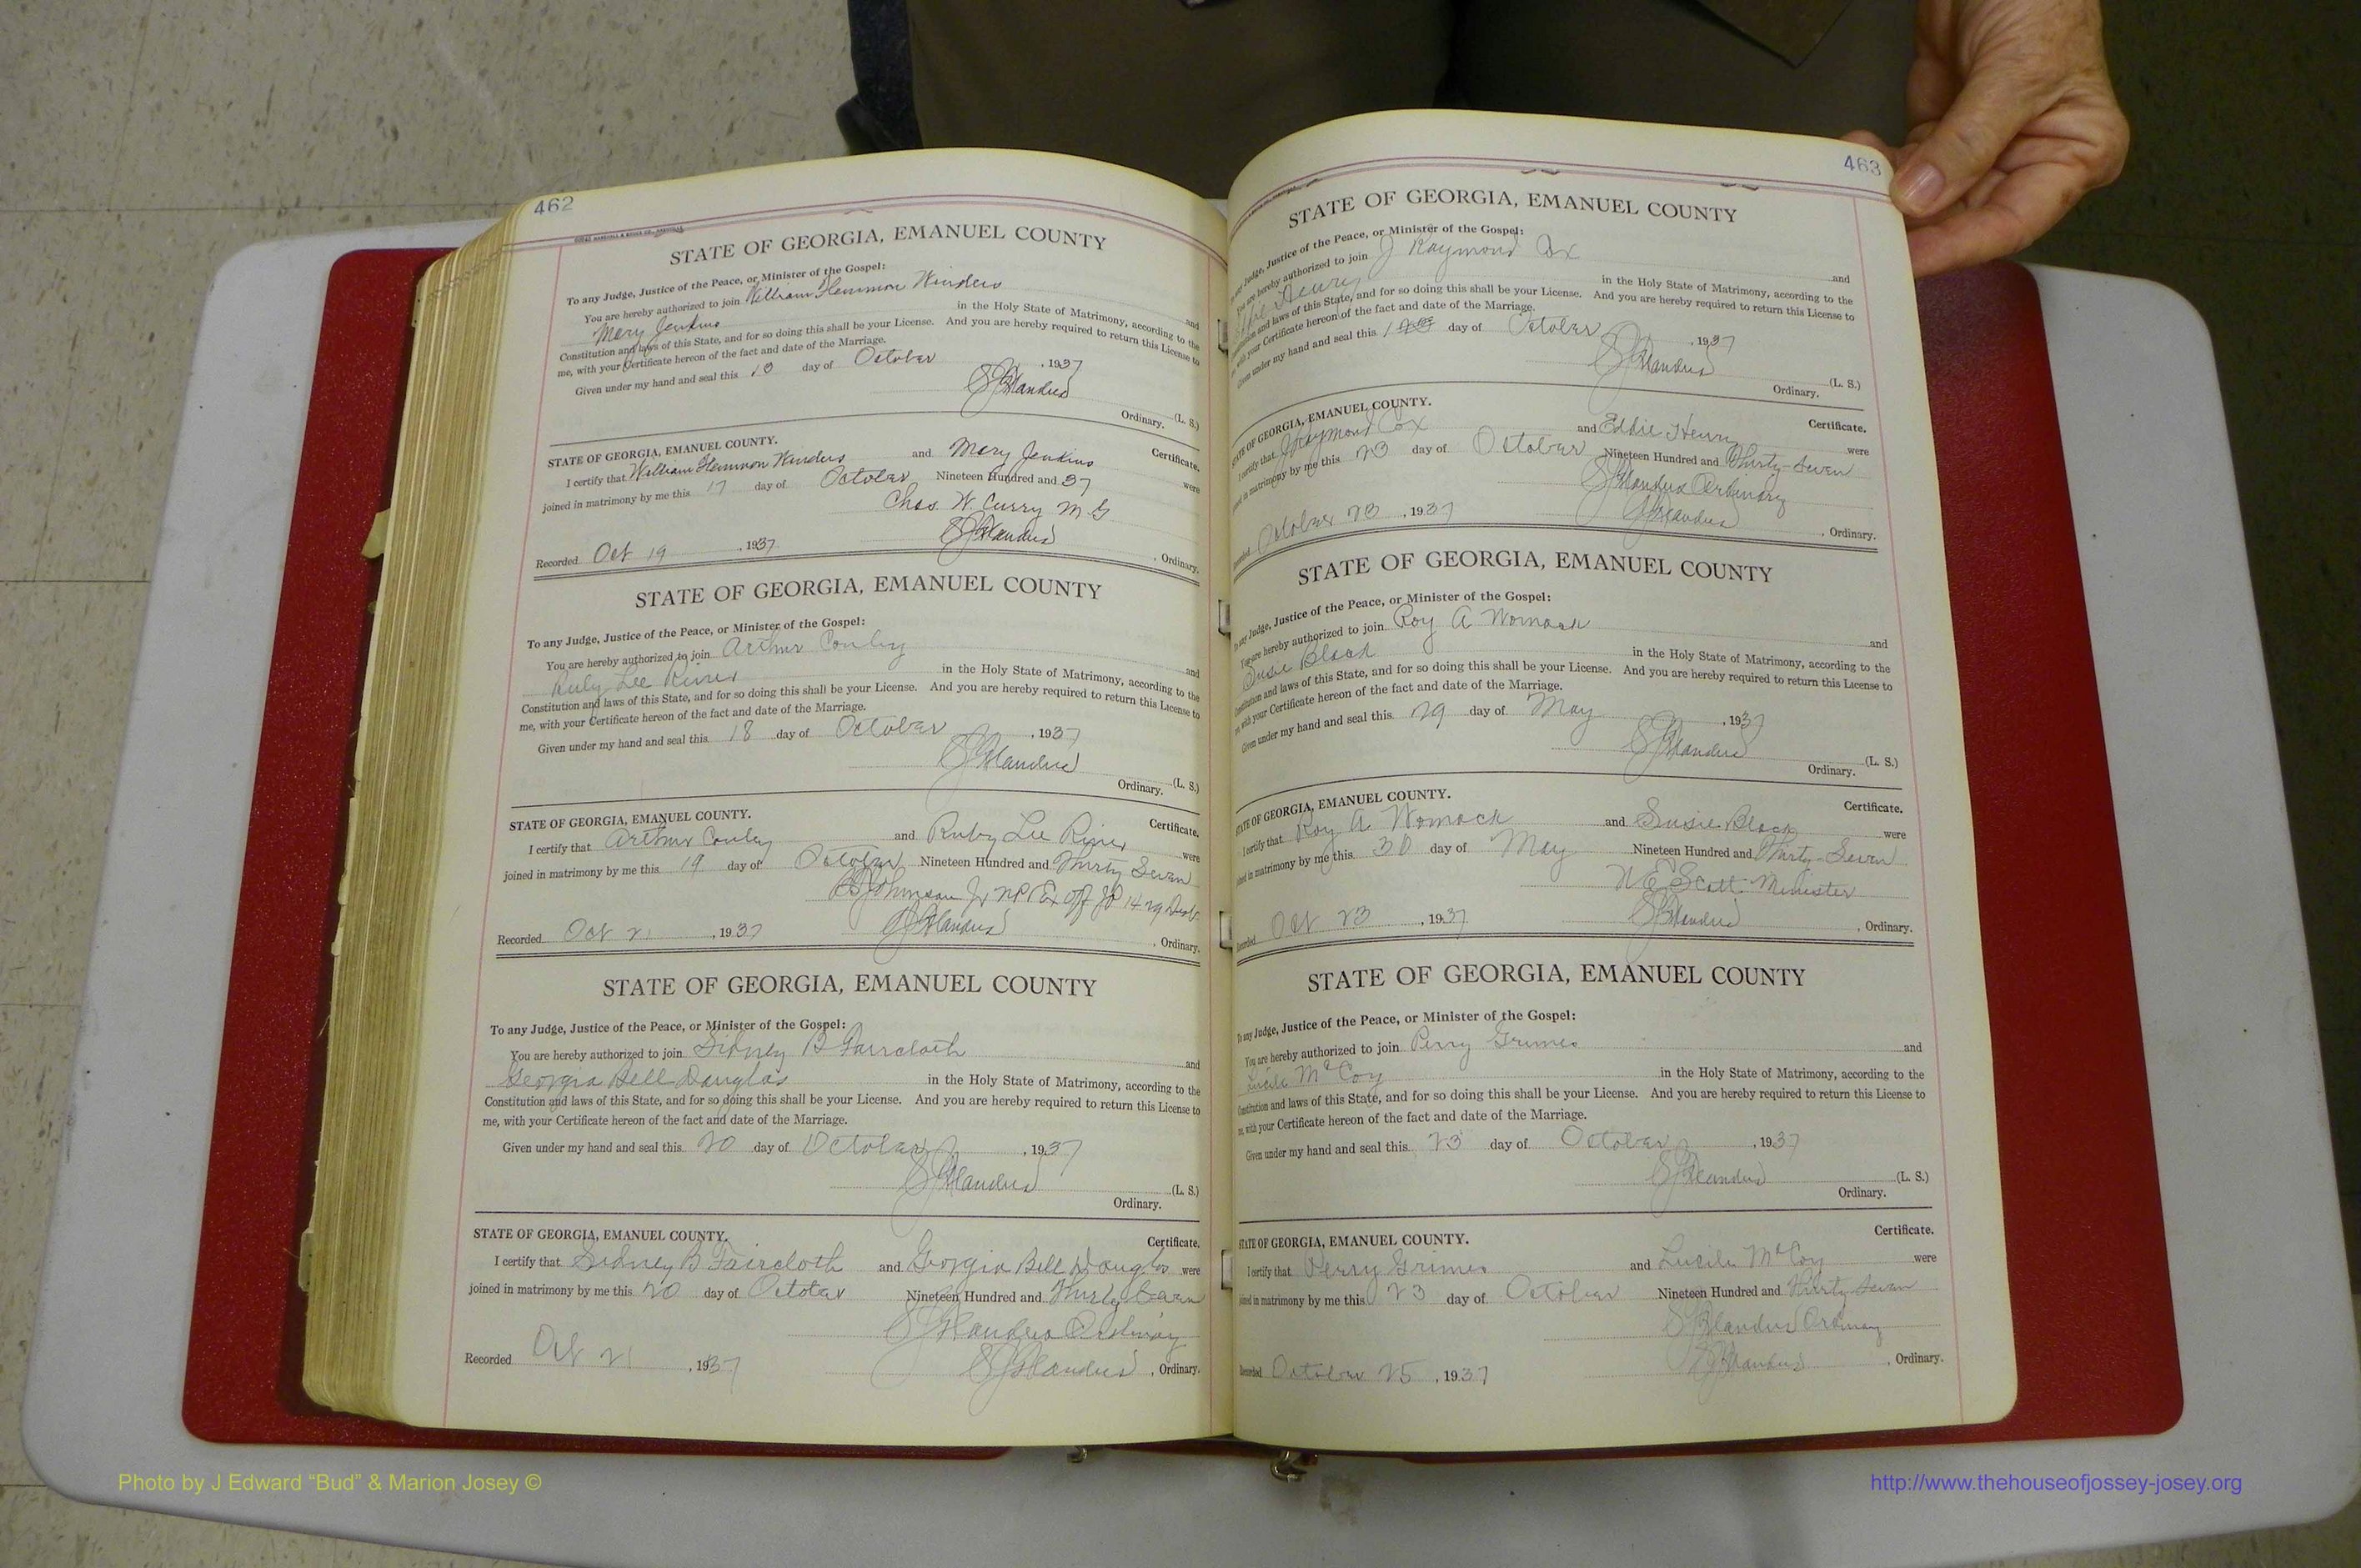 462
STATE OF GEORGIA, EMANUEL COUNTY
To any Judge, Justice of the Peace, or Minister of the Gospel:
You are hereby authorized to join William Hemmon Winders and
Mary Jenkins in the Holy State of Matrimony, according to the
Constitution and laws of this State, and for so doing this shall be your License. And you are hereby required to return this License to
me, with your Certificate hereon of the fact and date of the Marriage.
Given under my hand and seal this day of October , 1937
(L. S.)
Ordinary.
STATE OF GEORGIA, EMANUEL COUNTY.
Certificate.
I certify that William Hemmon Winders and Mary Jenkins were
joined in matrimony by me this 17 day of October Nineteen Hundred and 37
Chas. W. Curry M G
Recorded Oct 19 , 1937 , Ordinary.
STATE OF GEORGIA, EMANUEL COUNTY
To any Judge, Justice of the Peace, or Minister of the Gospel:
You are hereby authorized to join Arthur Conley and
Ruby Lee in the Holy State of Matrimony, according to the
Constitution and laws of this State, and for so doing this shall be your License. And you are hereby required to return this License to
me, with your Certificate hereon of the fact and date of the Marriage.
Given under my hand and seal this 18 day of October , 1937
(L. S.)
Ordinary.
STATE OF GEORGIA, EMANUEL COUNTY.
Certificate.
I certify that Arthur Conley and Ruby Lee were
joined in matrimony by me this 19 day of October Nineteen Hundred and Thirty Seven
Johnson Jr NP Ex Off JP 1429 Dist
Recorded Oct 21 , 1937 , Ordinary.
STATE OF GEORGIA, EMANUEL COUNTY
To any Judge, Justice of the Peace, or Minister of the Gospel:
You are hereby authorized to join Sidney B Faircloth and
Georgia Bell Douglas in the Holy State of Matrimony, according to the
Constitution and laws of this State, and for so doing this shall be your License. And you are hereby required to return this License to
me, with your Certificate hereon of the fact and date of the Marriage.
Given under my hand and seal this 20 day of October , 1937
(L. S.)
Ordinary.
STATE OF GEORGIA, EMANUEL COUNTY.
Certificate.
I certify that Sidney B Faircloth and Georgia Bell Douglas were
joined in matrimony by me this 20 day of October Nineteen Hundred and Thirty Seven
Ordinary
Recorded Oct 21 , 1937 , Ordinary.
463
STATE OF GEORGIA, EMANUEL COUNTY
To any Judge, Justice of the Peace, or Minister of the Gospel:
You are hereby authorized to join J Raymond Cox and
Henry in the Holy State of Matrimony, according to the
Constitution and laws of this State, and for so doing this shall be your License. And you are hereby required to return this License to
me, with your Certificate hereon of the fact and date of the Marriage.
Given under my hand and seal this day of October , 1937
(L. S.)
Ordinary.
STATE OF GEORGIA, EMANUEL COUNTY.
Certificate.
I certify that J Raymond Cox and Eddie Henry were
joined in matrimony by me this 23 day of October Nineteen Hundred and Thirty-Seven
Ordinary
Recorded October 23 , 1937 , Ordinary.
STATE OF GEORGIA, EMANUEL COUNTY
To any Judge, Justice of the Peace, or Minister of the Gospel:
You are hereby authorized to join Roy A Womack and
Susie Black in the Holy State of Matrimony, according to the
Constitution and laws of this State, and for so doing this shall be your License. And you are hereby required to return this License to
me, with your Certificate hereon of the fact and date of the Marriage.
Given under my hand and seal this 29 day of May , 1937
(L. S.)
Ordinary.
STATE OF GEORGIA, EMANUEL COUNTY.
Certificate.
I certify that Roy A. Womack and Susie Black were
joined in matrimony by me this 30 day of May Nineteen Hundred and Thirty-Seven
Scott Minister
Recorded Oct 23 , 1937 , Ordinary.
STATE OF GEORGIA, EMANUEL COUNTY
To any Judge, Justice of the Peace, or Minister of the Gospel:
You are hereby authorized to join Perry Grimes and
Lucile McCoy in the Holy State of Matrimony, according to the
Constitution and laws of this State, and for so doing this shall be your License. And you are hereby required to return this License to
me, with your Certificate hereon of the fact and date of the Marriage.
Given under my hand and seal this 23 day of October , 1937
(L. S.)
Ordinary.
STATE OF GEORGIA, EMANUEL COUNTY.
Certificate.
I certify that Perry Grimes and Lucile McCoy were
joined in matrimony by me this 23 day of October Nineteen Hundred and Thirty Seven
Ordinary
Recorded October 25 , 1937 , Ordinary.
Photo by J Edward “Bud” & Marion Josey ©
http://www.thehouseofjossey-josey.org